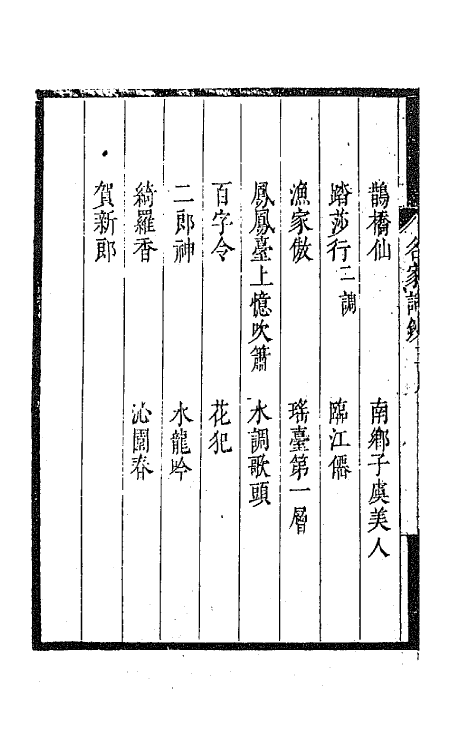 名家詞鈔
鵲橋仙　南鄉子虞美人
踏莎行二調　臨江僊
漁家傲　瑤臺第一層
鳳凰臺上憶吹簫　水調歌頭
百字令　花犯
二郎神　水龍吟
綺羅香　沁園春
賀新郎